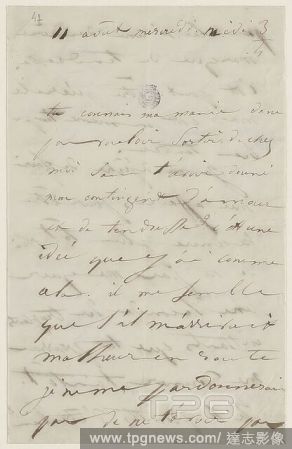 41
11 août mercredi midi 3/4
tu connais ma manie donc
pas vouloir sortir de chez
moi sans t'avoir donné
mon contingent d'amour
et de tendresse c'est une
idée que j'ai comme
cela. il me semble
que s'il m'arrivait
malheur en route
je ne me pardonnerais
pas de ne t'avoir pas
TPG
www.tpgnews.com / 達志影像